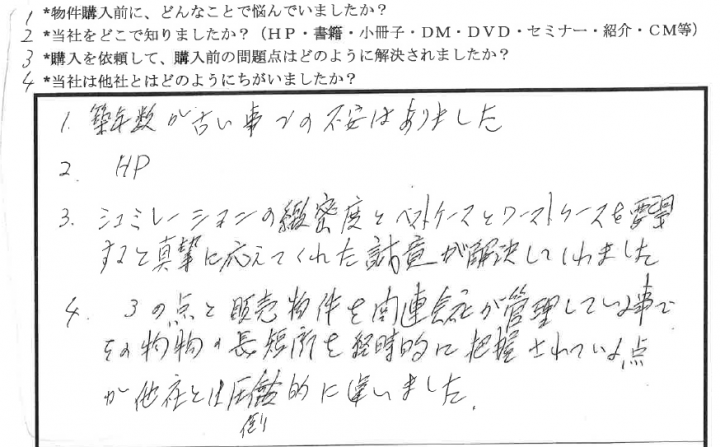 1 *物件購入前に、どんなことで悩んでいましたか?
2 *当社をどこで知りましたか?(HP・書籍・小冊子・DM・DVD・セミナー・紹介・CM等)
3 *購入を依頼して、購入前の問題点はどのように解決されましたか?
4 *当社は他社とはどのようにちがいましたか?
1. 築年数が古い事での不安はありました
2. HP
3. シュミレーションの緻密度とベストケースとワーストケースを要望
すると真摯に応えてくれた誠意が解決してくれました
4. 3の点と販売物件を関連会社が管理している事で
その物物の長短所を経時的に把握されている点
が他社とは圧倒的に違いました。